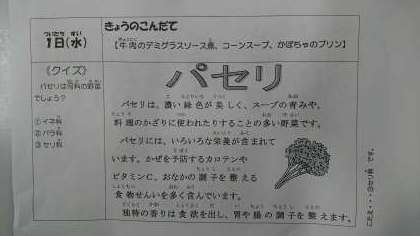 1日(水)
きょうのこんだて
【牛肉のデミグラスソース煮、コーンスープ、かぼちゃのプリン】
《クイズ》
パセリは何科の野菜
でしょう?
①イネ科
②バラ科
③セリ科
パセリ
パセリは、濃い緑色が美しく、スープの青みや、
料理のかざりに使われたりすることの多い野菜です。
パセリには、いろいろな栄養が含まれて
います。かぜを予防するカロテンや
ビタミンC、おなかの調子を整える
食物せんいを多く含んでいます。
独特の香りは食欲を出し、胃や腸の調子を整えます。
こたえ・・・③セリ科 です。